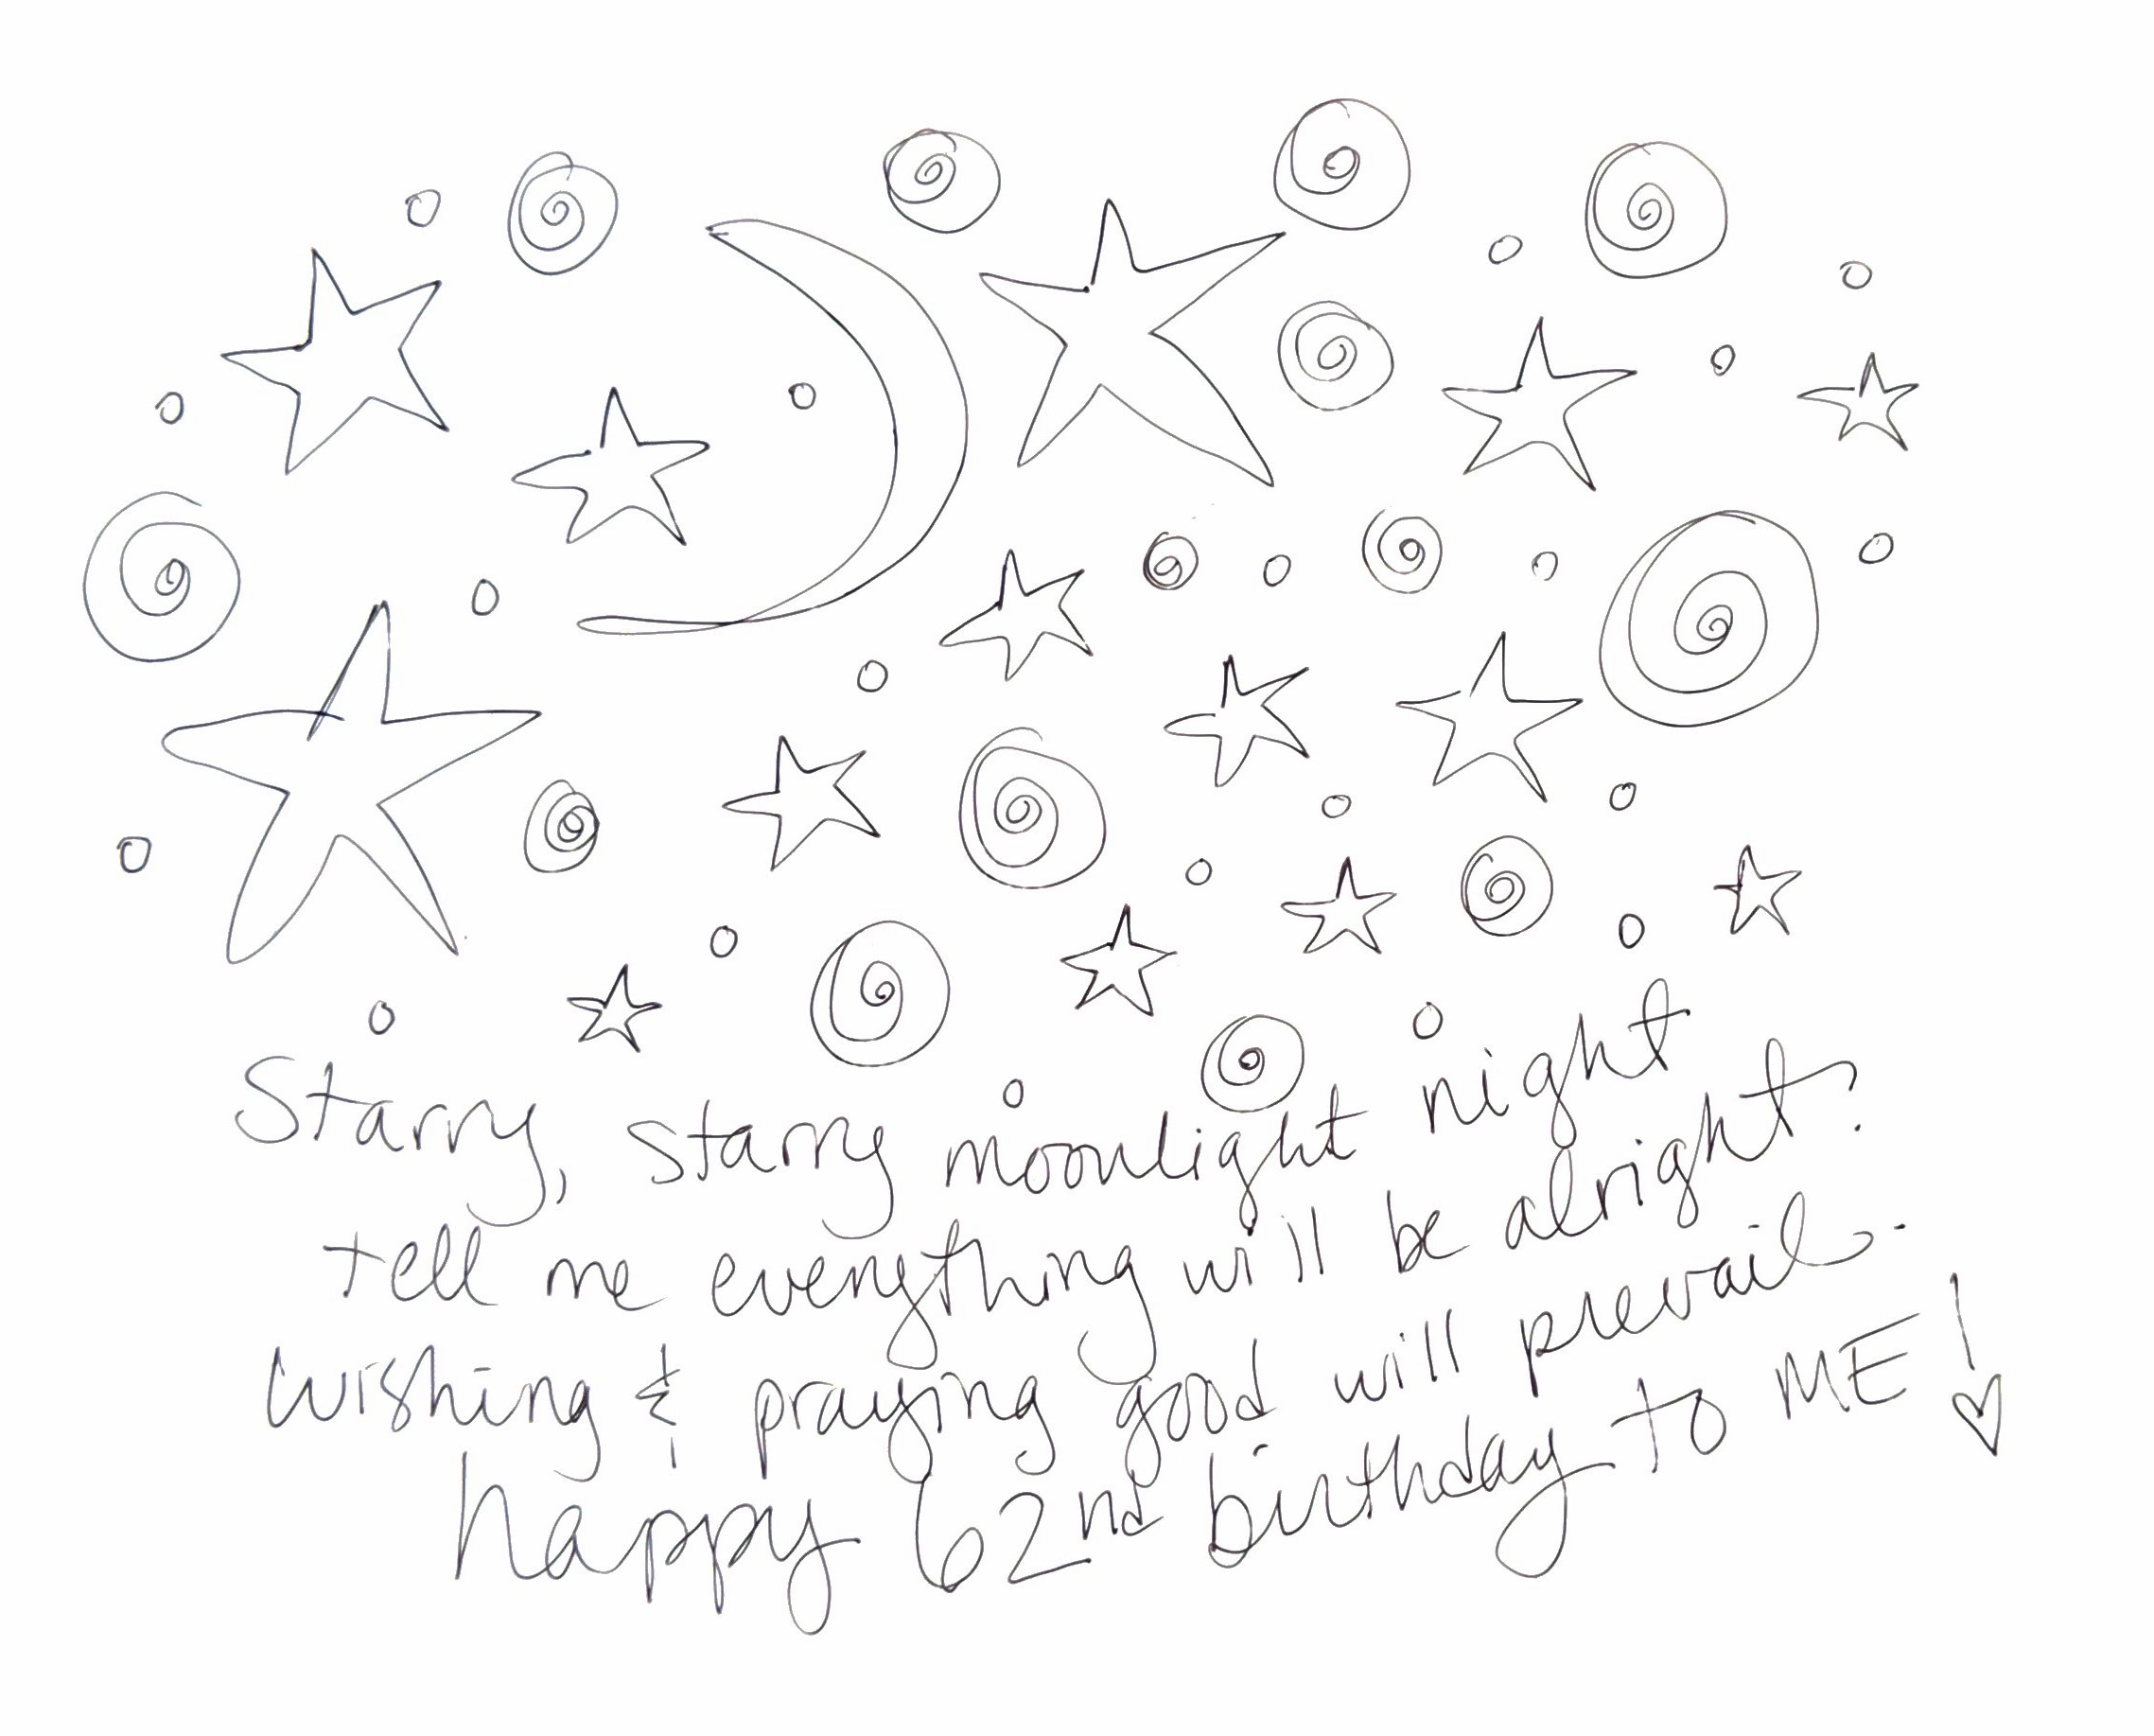 Starry, starry moonlight night
tell me everything will be alright?
Wishing & praying good will prevail.
happy 62nd birthday to ME!